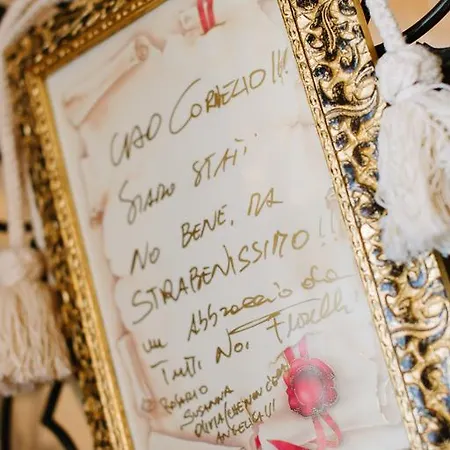 CIAO CORNEZIO!!!
SIAMO STATI
NO BENE, MA
STRABENISSIMO!!
UN ABBRACCIO DA
TUTTI NOI
ROSARIO
SUSANNA
OLIVIA
ANGELICA